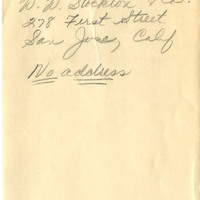 W. W. Stockton & Co.
278 First Street
San Jose, Calif
No address